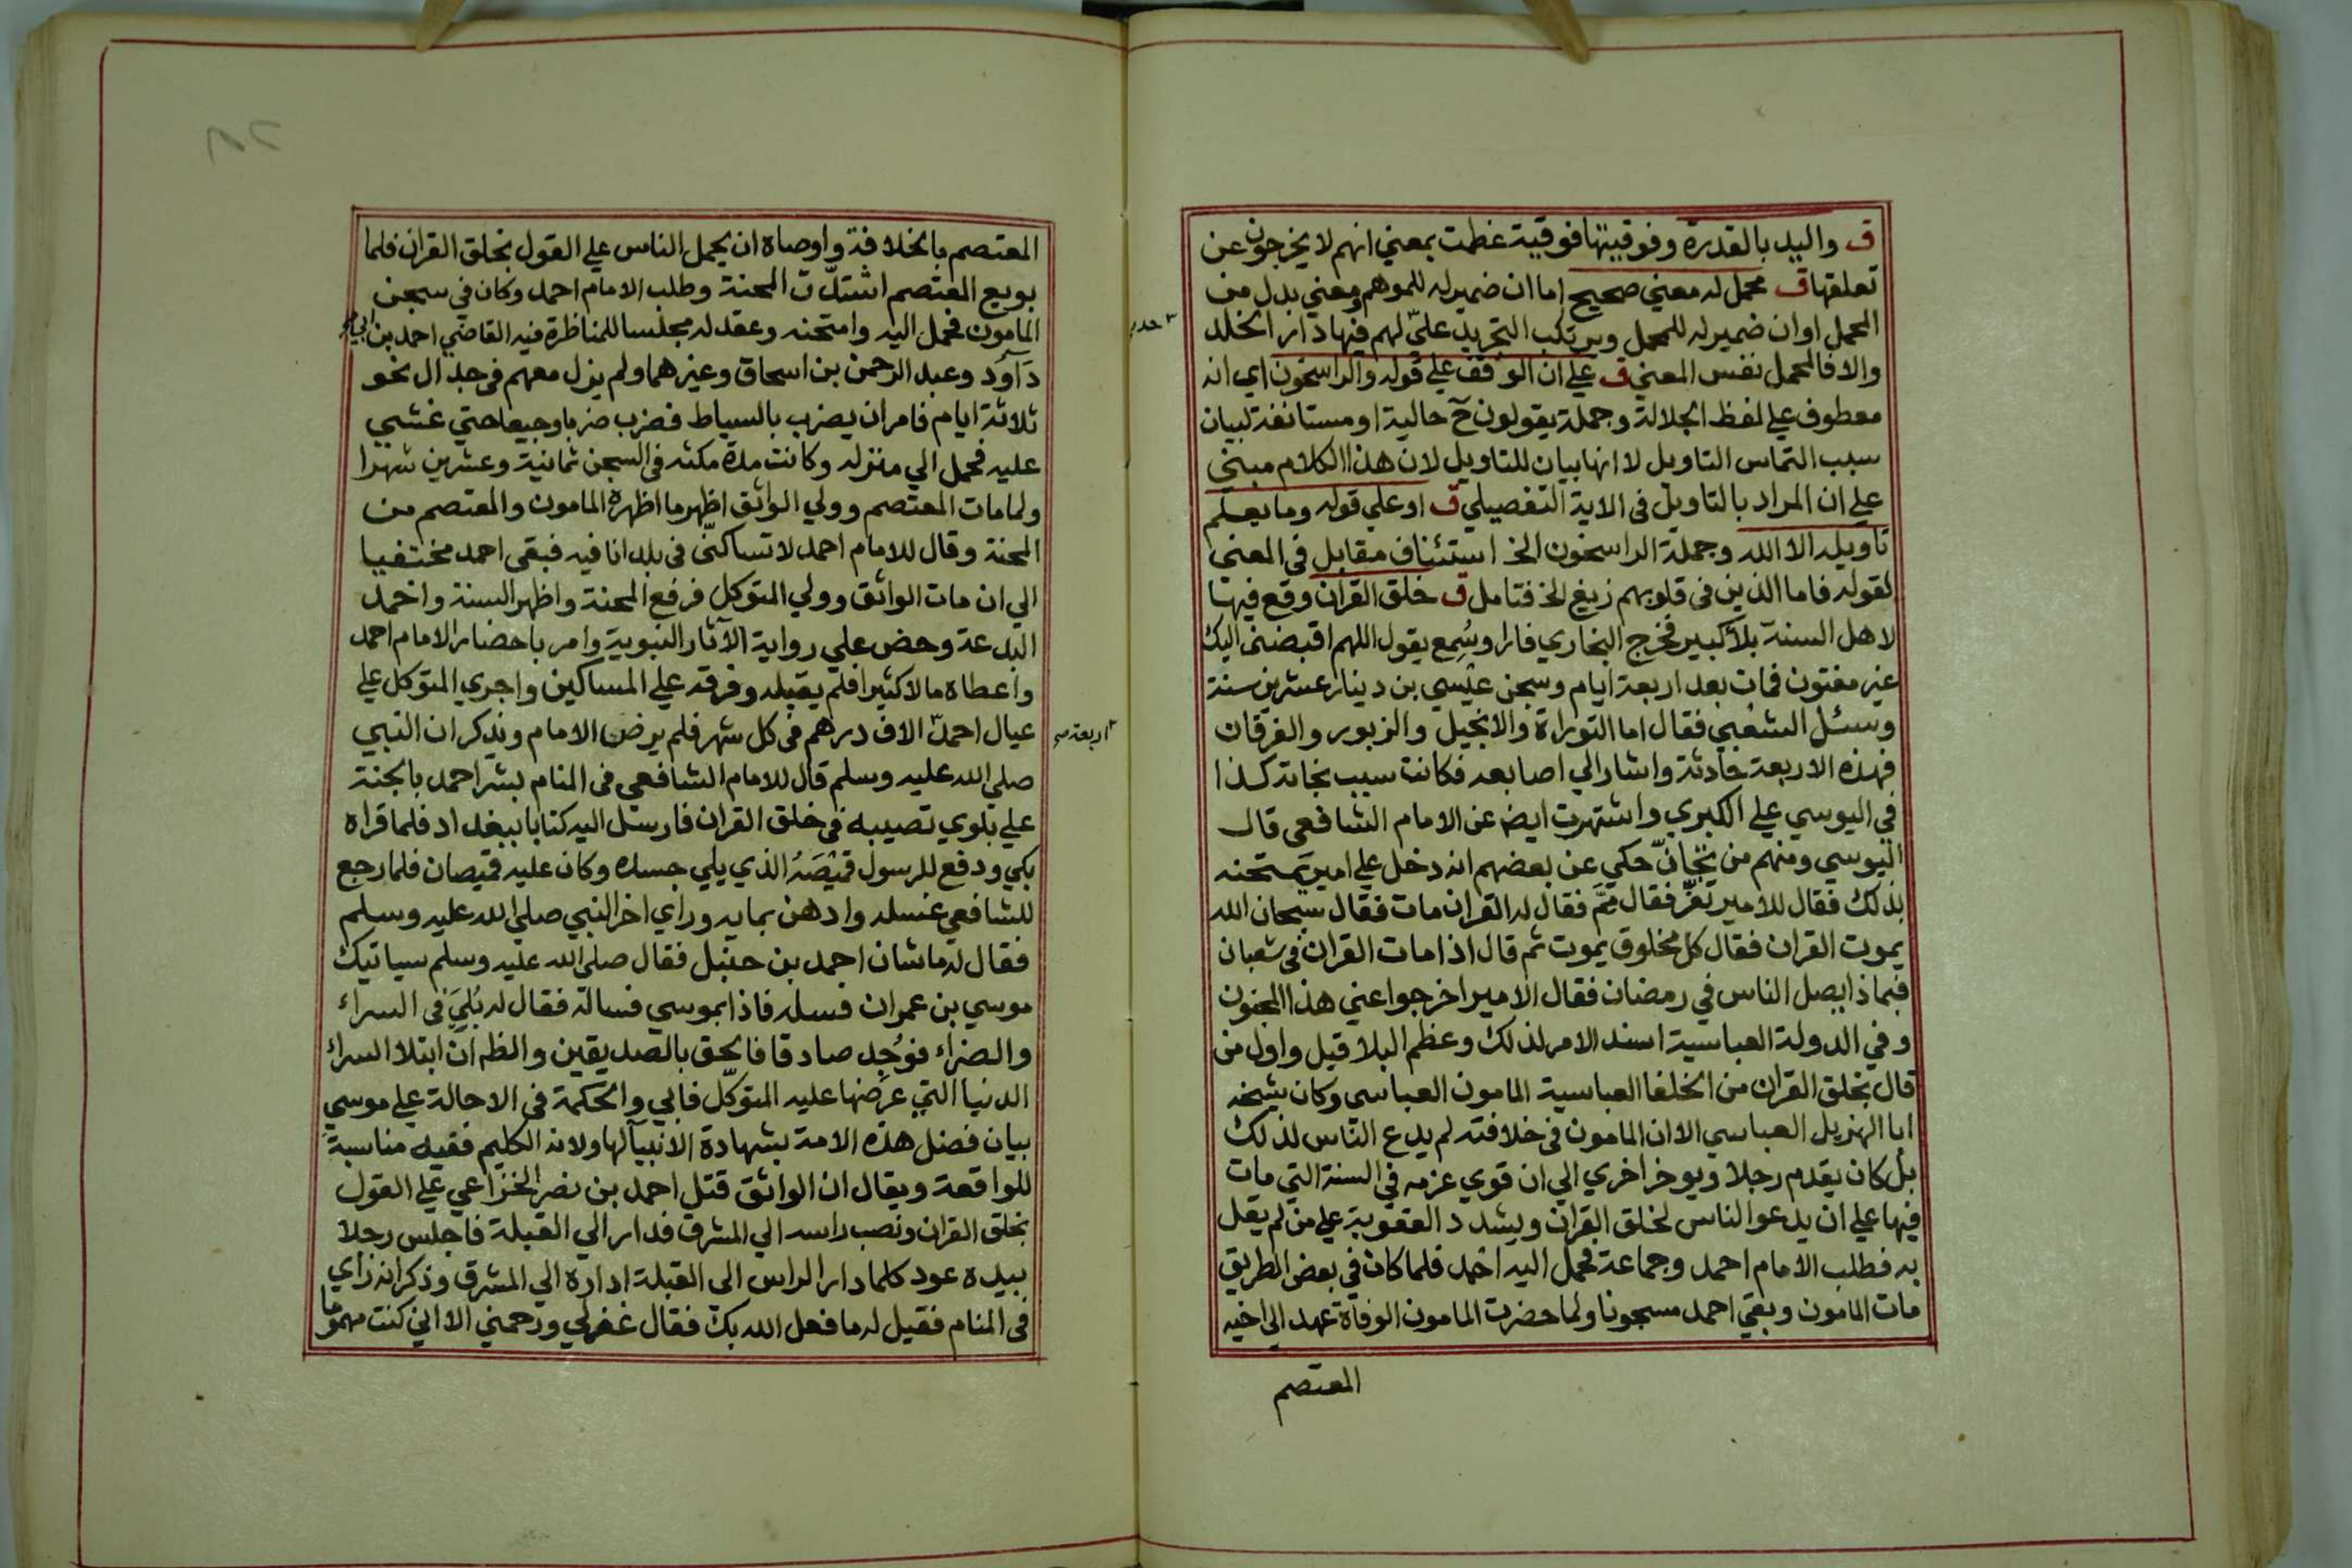 ق واليد بالقدرة وفوقيتها فوقية عظمت بمعني انهم لا يخرجون عن
تعلقها ق محمل له معني صحيح اما ان ضمير له للموهم ومعني بدل من
المحمل او ان ضمير له للمحمل ويرتكب التجريد علي لهم فيها دار الخلد
والا فالمحمل نفس المعني ق علي ان الوقف علي قوله والراسخون اي انه
معطوف علي لفظ الجلالة وجملة يقولون ح حالية او مستانفة لبيان
سبب التماس التاويل لا انها بيان للتاويل لان هذا الكلام مبني
علي ان المراد بالتاويل في الاية التفصيلي ق او علي قوله وما يعلم
تاويله الا الله وجملة الراسخون الخ استئناف مقابل في المعني
لقوله فاما الذين في قلوبهم زيغ الخ فتامل ق خلق القران وقع فيها
لاهل السنة بلاٌ كبير فخرج البخاري فارا وسُمِع يقول اللهم اقبضني اليك
غير مفتون فمات بعد اربعة ايام وسجن عيسي بن دينار عشرين سنة
وسئل الشعبي فقال اما التوراة والانجيل والزبور والفرقان
فهذه الاربعة حادثة واشار الي اصابعه فكانت سبب نجاته كذا
في اليوسي علي الكبري واشتهرت ايضا عن الامام الشافعي قال
اليوسي ومنهم من تجانّ حكي عن بعضهم انه دخل علي امير يمتحنه
بذلك فقال للامير تعزّ فقال مِمَّ فقال له القران مات فقال سبحان الله
يموت القران فقال كل مخلوق يموت ثم قال اذا مات القران في شعبان
فبماذا يصل الناس في رمضان فقال الامير اخرجوا عني هذا المجنون
وفي الدولة العباسية اسند الامر لذلك وعظم البلا قيل واول من
قال بخلق القران من الخلفا العباسية المامون العباسي وكان شيخه
ابا الهزيل العباسي الا ان المامون في خلافته لم يدع الناس لذلك
بل كان يقدم رجلا ويوخر اخري الي ان قوي عزمه في السنة التي مات
فيها علي ان يدعو الناس لخلق القران ويشدد العقوبة علي من لم يقل
به فطلب الامام احمد وجماعة فحمل اليه احمد فلما كان في بعض الطريق
مات المامون وبقي احمد مسجونا ولما حضرت المامون الوفاة عهد الي اخيه
المعتصم
المعتصم بالخلافة واوصاه ان يحمل الناس علي القول بخلق القران فلما
بويع المعتصم اشتدّت المحنة وطلب الامام احمد وكان في سجن
المامون فحمل اليه وامتحنه وعقد له مجلسا للمناظرة فيه القاضي احمد بن ابي
دآود وعبد الرحمن بن اسحاق وغيرهما ولم يزل معهم في جدال نحو
ثلاثة ايام فامر ان يضرب بالسياط فضرب ضربا وجيعا حتي غشي
عليه فحمل الي منزله وكانت مدة مكثه في السجن ثمانية وعشرين شهرا
ولما مات المعتصم وولي الواثق اظهر ما اظهره المامون والمعتصم من
المحنة وقال للامام احمد لا تساكنّي في بلد انا فيه فبقي احمد مختفيا
الي ان مات الواثق وولي المتوكل فرفع المحنة واظهر السنة واخمد
البدعة وحض علي رواية الآثار النبوية وامر باحضار الامام احمد
واعطاه مالا كثيرا فلم يقبله وفرقه علي المساكين واجري المتوكل علي
عيال احمد الاف درهم في كل شهر فلم يرض الامام ويذكر ان النبي
اربعة
صلي الله عليه وسلم قال للامام الشافعي في المنام بشر احمد بالجنة
علي بلوي تصيبه في خلق القران فارسل اليه كتابا ببغداد فلما قراه
بكي ودفع للرسول قميصَهُ الذي يلي جسده وكان عليه قميصان فلما رجع
للشافعي غسله وادهن بمايه وراي اخر النبي صلي الله عليه وسلم
فقال له ما شان احمد بن حنبل فقال صلي الله عليه وسلم سياتيك
موسي بن عمران فسله فاذا بموسي فسالة فقال له بُلِيَ في السراء
والضراء فوُجِد صادقا فالحق بالصديقين والظه ان ابتلا السراء
الدنيا التي عرضها عليه المتوكّل فابي والحكمة في الاحالة علي موسي
بيان فضل هذه الامة بشهادة الانبيآ لها ولانه الكليم ففيه مناسبة
للواقعة ويقال ان الواثق قتل احمد بن نصر الخزاعي علي القول
بخلق القران ونصب راسه الي المشرق فدار الي القبلة فاجلس رجلا
بيده عود كلما دار الراس الي القبلة اداره الي المشرق وذكر انه رأي
في المنام فقيل له ما فعل الله بك فقال غفر لي ورحمني الا اني كنت مهموما